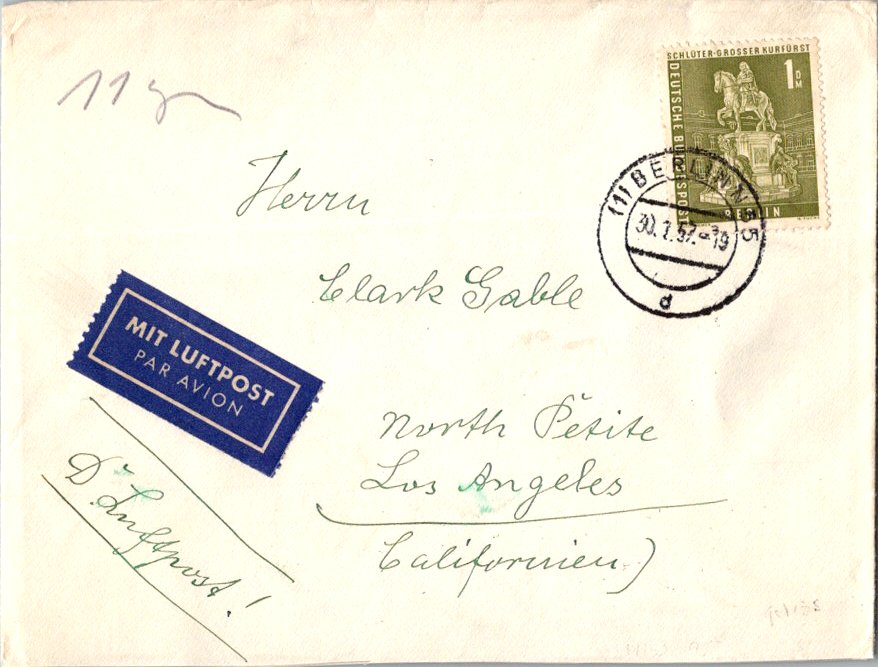 11 gr
SCHLÜTER·GROSSER KURFÜRST
1 DM
DEUTSCHE BUNDESPOST
BERLIN
(1) BERLIN N 65
30.7.57.-19
d
Herrn
Clark Gable
MIT LUFTPOST
PAR AVION
North Petite
Los Angeles
Californien)
D. Luftpost!